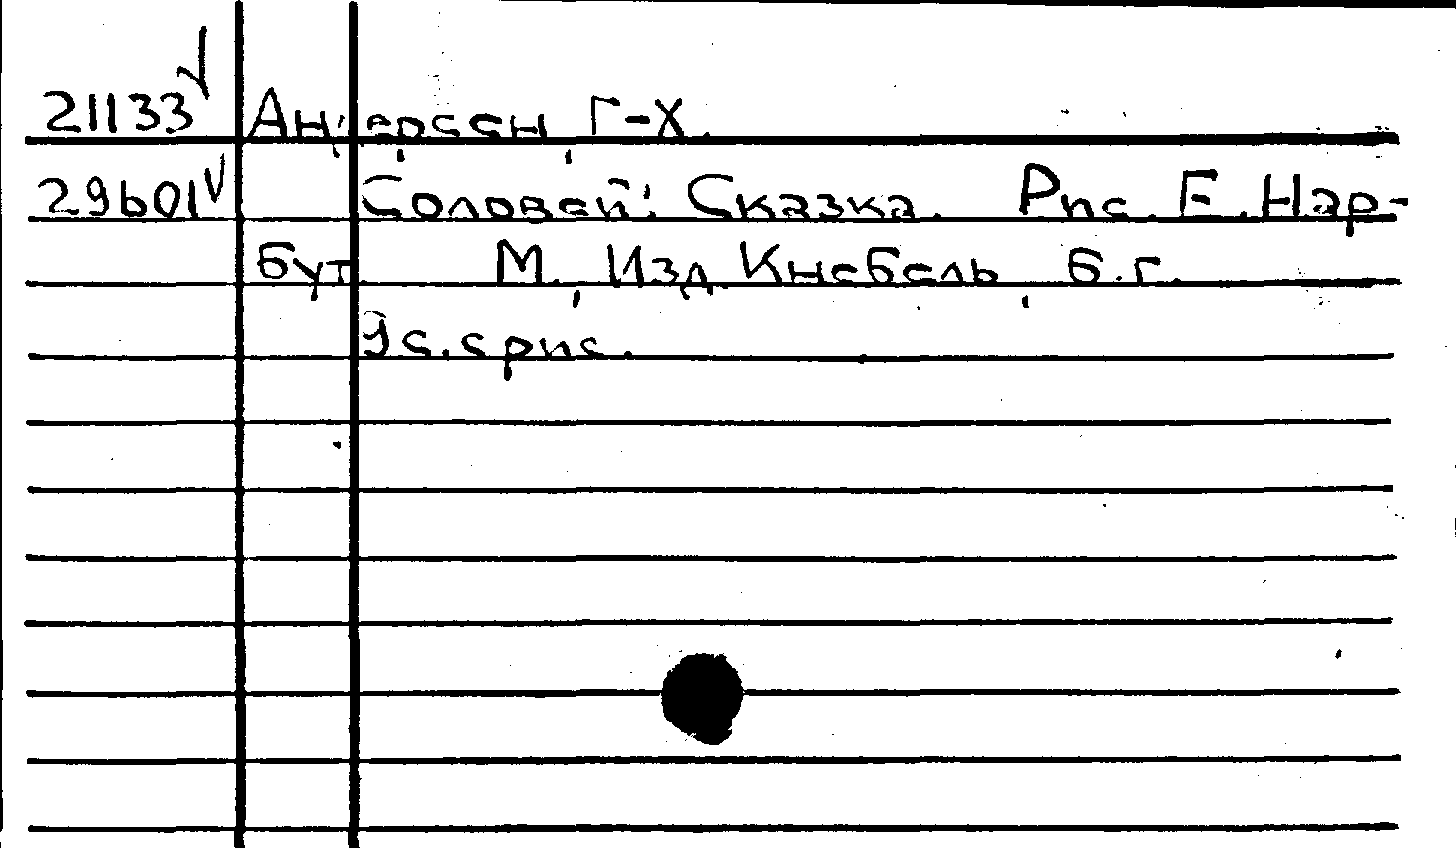 21133 Андерсен, Г-Х.
29601 Соловей: Сказка. Рис. Е. Нар-
бут. М., Изд. Кнебель, б.г.
9 с. с рис.